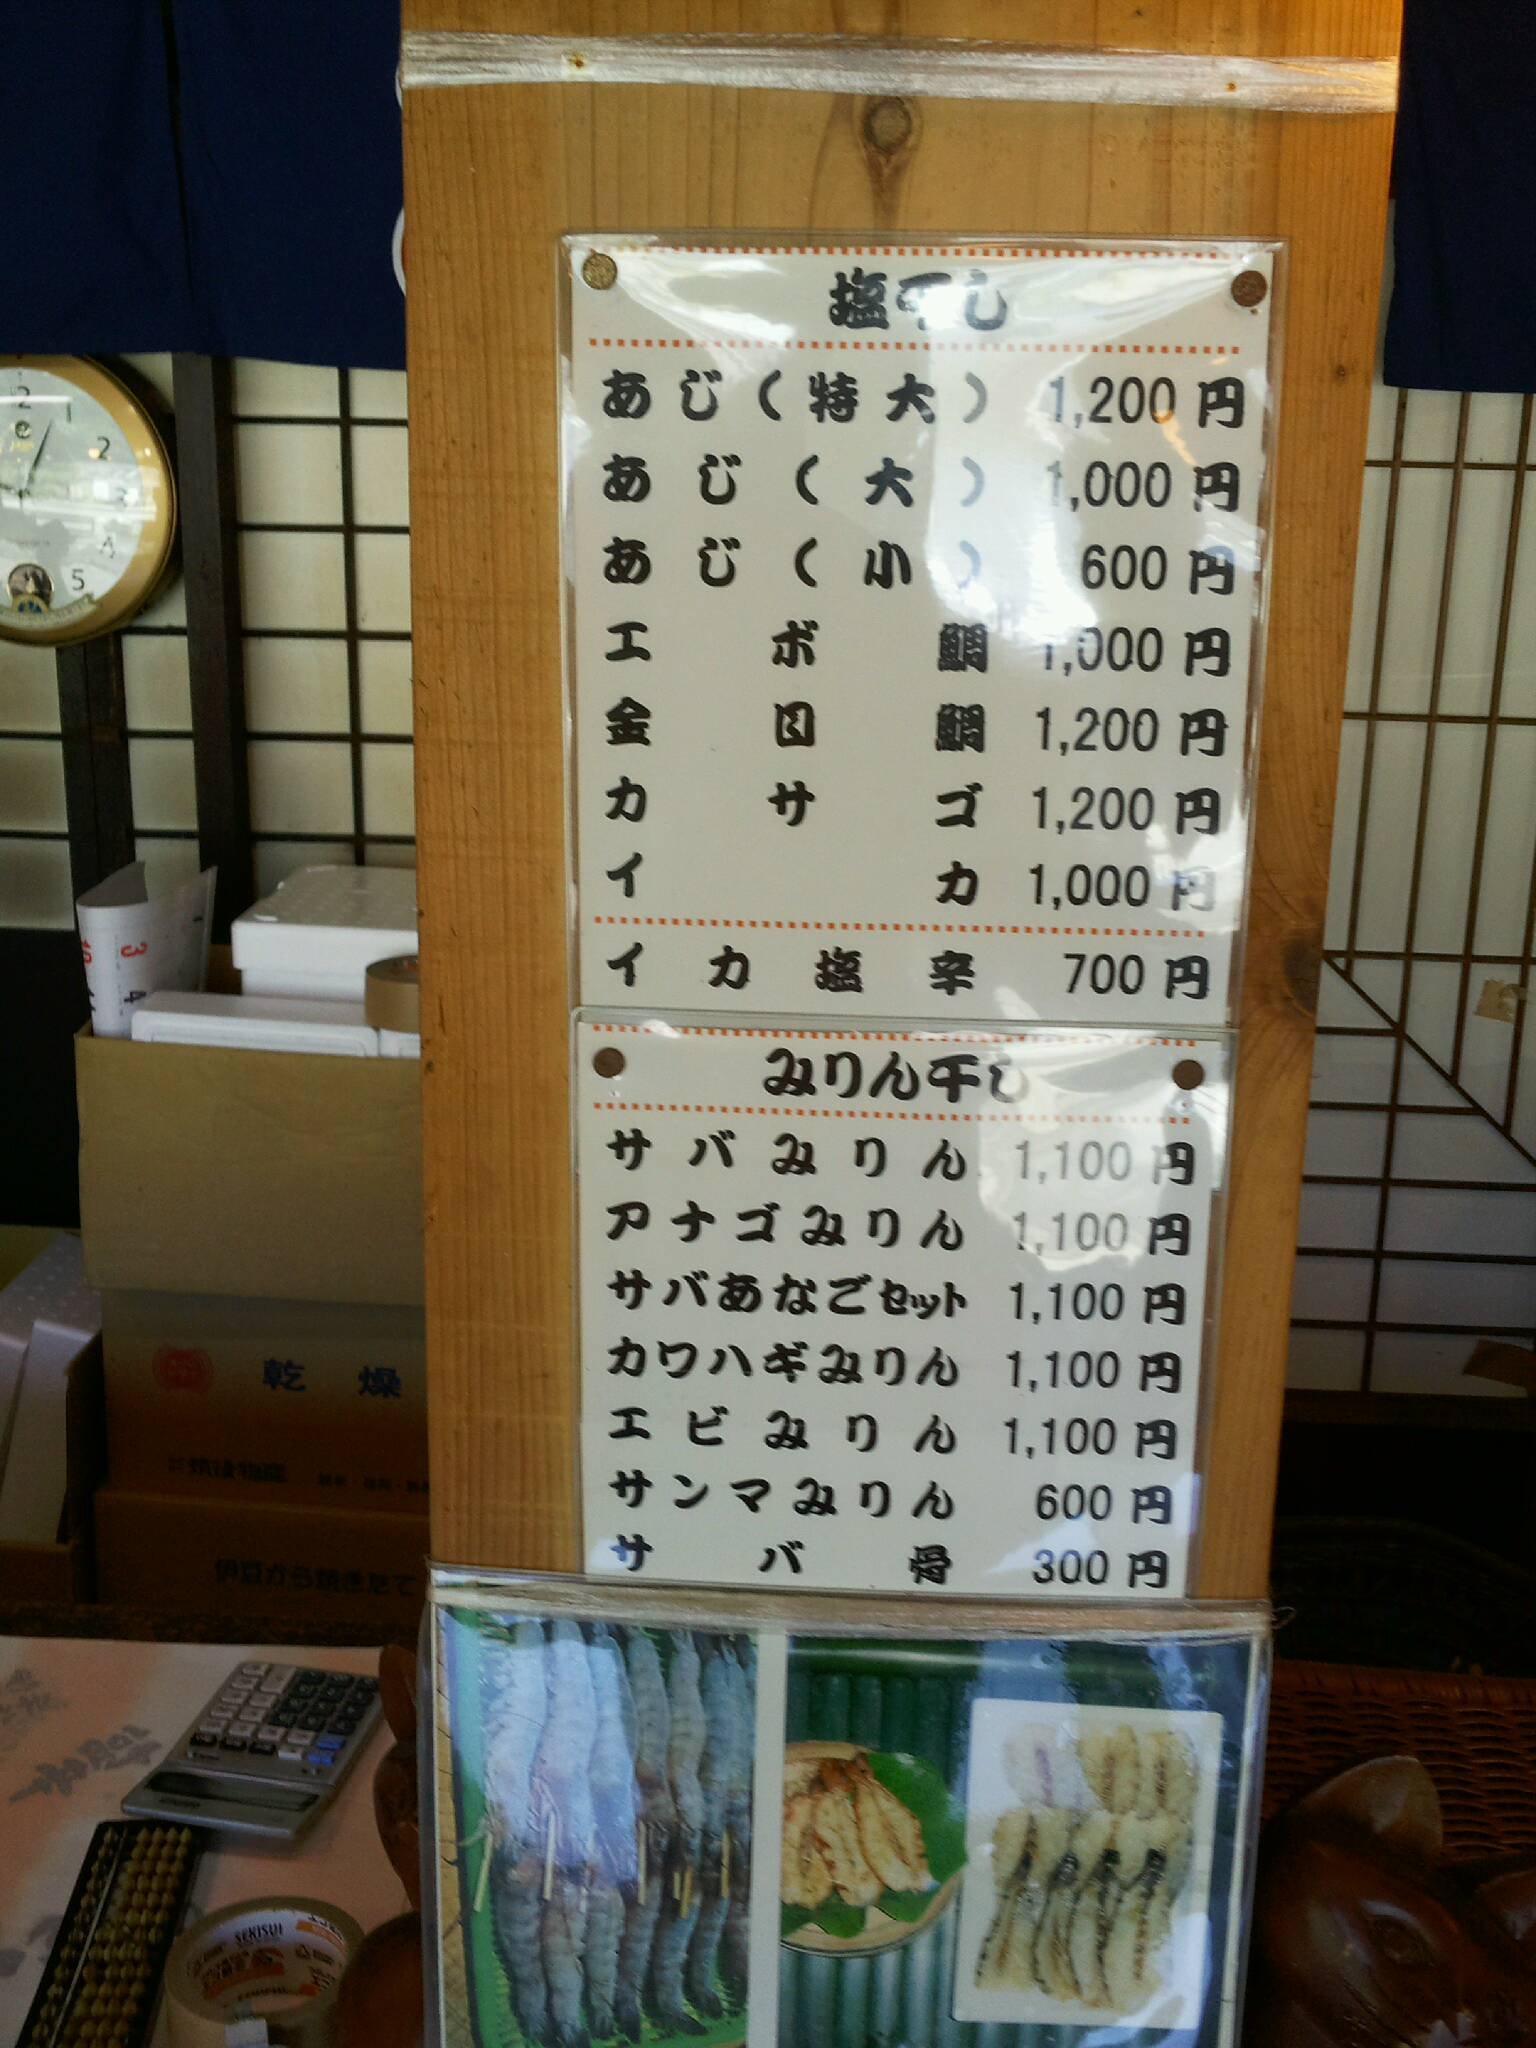 塩干し
あじ(特大) 1,200 円
あじ(大) 1,000 円
あじ(小) 600 円
エボ鯛 1,000 円
金目鯛 1,200 円
カサゴ 1,200 円
イカ 1,000 円
イカ塩辛 700 円
みりん干し
サバみりん 1,100 円
アナゴみりん 1,100 円
サバあなごセット 1,100 円
カワハギみりん 1,100 円
エビみりん 1,100 円
サンマみりん 600 円
サバ骨 300 円
2 1
2
3
4
5
3
4
乾燥
筑後物産
伊豆から焼きたて
SEKISUI